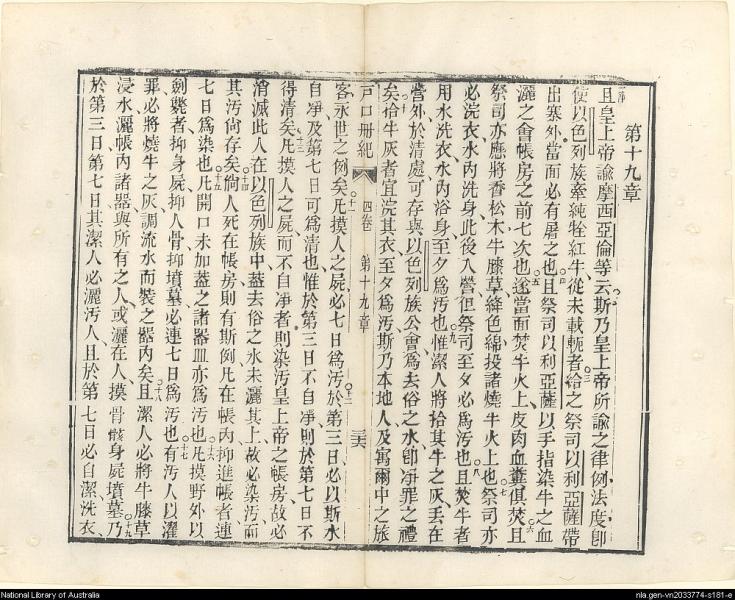 第十九章
且皇上帝諭摩西亞倫等云斯乃皇上帝所諭之律例法度卽
使以色列族牽純牲紅牛從未載軛者給之祭司以利亞薩帶
出塞外當面必有屠之也且祭司以利亞薩以手指染牛之血
灑之會帳房之前七次也遂當面焚牛火上皮肉血糞俱焚且
祭司亦應將香松木牛膝草絳色綿投諸燒牛火上也祭司亦
必浣衣水內洗身此後入營但祭司至夕必為汚也且焚牛者
用水洗衣水內浴身至夕為汚也惟潔人將拾其牛之灰丟在
營外於清處可存與以色列族公會為去俗之水卽淨罪之禮
矣拾牛灰者宜浣其衣至夕為汚斯乃本地人及寓爾中之旅
戶口冊紀 四卷 第十九章 三六
客永世之例矣凡摸人之屍必七日為汚於第三日必以斯水
自凈及第七日可為清也惟於第三日不自凈則於第七日不
得清矣凡摸人之屍而不自凈者則染汚皇上帝之帳房故必
消滅此人在以色列族中蓋去俗之水未灑其上故必染汚而
其汚尙存矣倘人死在帳房則有斯例凡在帳內抑進帳者連
七日為染也凡開口未加蓋之諸器皿亦為汚也凡摸野外以
劍斃者抑身屍抑人骨抑墳墓必連七日為汚也有汚人以濯
罪必將燒牛之灰調流水而裝之器內矣且潔人必將牛膝草
浸水灑帳內諸器與所有之人或灑在人摸骨骸身屍墳墓乃
於第三日第七日其潔人必灑汚人且於第七日必自潔洗衣
National Library of Australia
nla.gen-vn2033774-s181-e